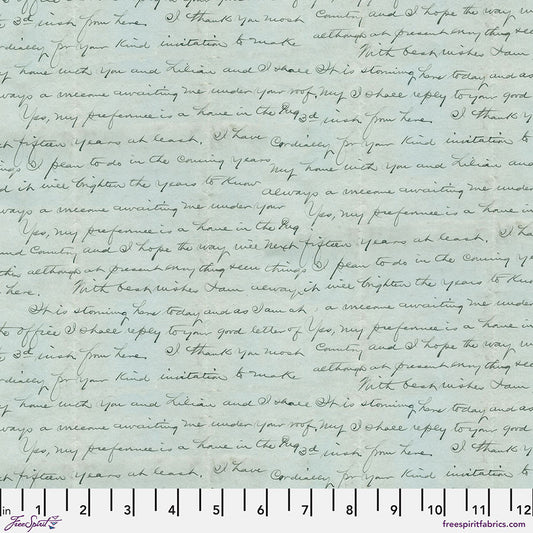 I thank you most Country and I hope the way w
to 3d inst from here. although at present everything see
ordially for your kind invitation to make With best wishes I am
y home with you and Lilian and I shall It is storming here today and as
ways a welcome awaiting me under your roof. My I shall reply to your good
Yes, my preference is a home in the 3d inst from here. I thank y
xt fifteen years at least. I have Cordially for your kind invitation to
ings I plan to do in the coming years my home with you and Lilian and
d it will brighten the years to know always a welcome awaiting me unde
ways a welcome awaiting me under your Yes, my preference is a home in
Yes, my preference is a home in the next fifteen years at least. I ha
and Country and I hope the way will things I plan to do in the coming y
this although at present everything seem it will brighten the years to kno
here. With best wishes I am always a welcome awaiting me under
It is storming here today and as I am at Yes, my preference is a home in
to office I shall reply to your good letter of Country and I hope the way w
to 3d inst from here. I thank you most although at present everything see
ordially for your kind invitation to make With best wishes I am
y home with you and Lilian and I shall It is storming here today and as
ways a welcome awaiting me under your roof. My I shall reply to your good
Yes, my preference is a home in the 3d inst from here. I thank y
xt fifteen years at least. I have Cordially for your kind invitation to
in 1 2 3 4 5 6 7 8 9 10 11 12
FreeSpirit
freespiritfabrics.com